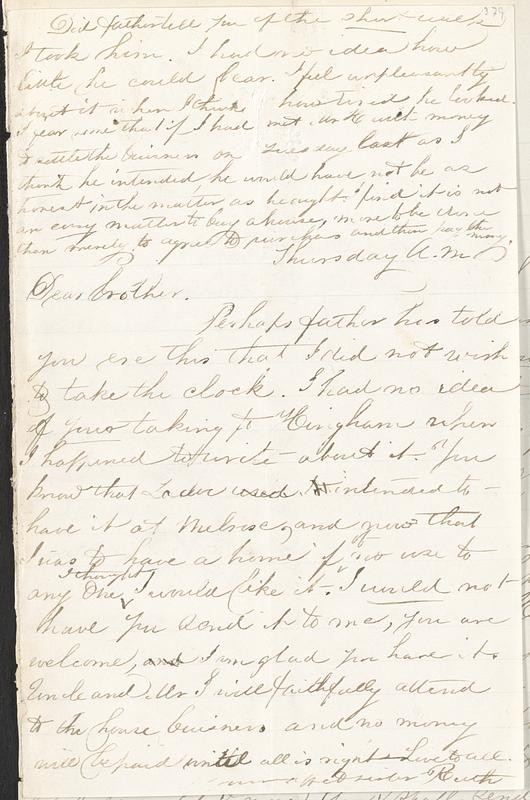 379
Did father tell you of the short walk
I took him. I had no idea how
little he could bear. I feel unpleasantly
about it when I think how tired he looked.
I fear some that if I had met Mr H with money
to settle the buisness on Tuesday last as I
think he intended, he would have not be as
honest in the matter as he ought. I find it is not
an easy matter to buy a house, more to be done
than merely to agree to purchas and then pay the money.
Thursday A.M.
Dear brother.
Perhaps father has told
you ere this that I did not wish
to take the clock. I had no idea
of your taking it Hingham when
I happened to write about it. You
know that intended to
have it at Melrose, and now that
I was to have a home if of no use to
any one, I thought I would like it. I would not
have you send it to me, you are
welcome, and I am glad you have it.
Uncle and Mr I will faithfully attend
to the house buisness and no money
will be paid until all is right. Love to all.
sister Ruth